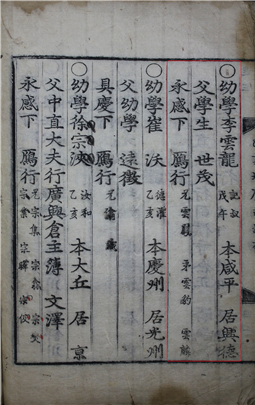 ○幼學李雲龍 戊午 本咸平 居興德
父學生 世茂
永感下 鴈行 兄雲鳳 弟雲豹
○幼學崔 沃 乙亥 本慶州 居光州
父幼學 遠徵
具慶下 鴈行
○幼學徐宗浹 汝和 乙亥 本大丘 居京
父中直大夫行廣興倉主簿 文澤
永感下 鴈行 兄宗集 宗業